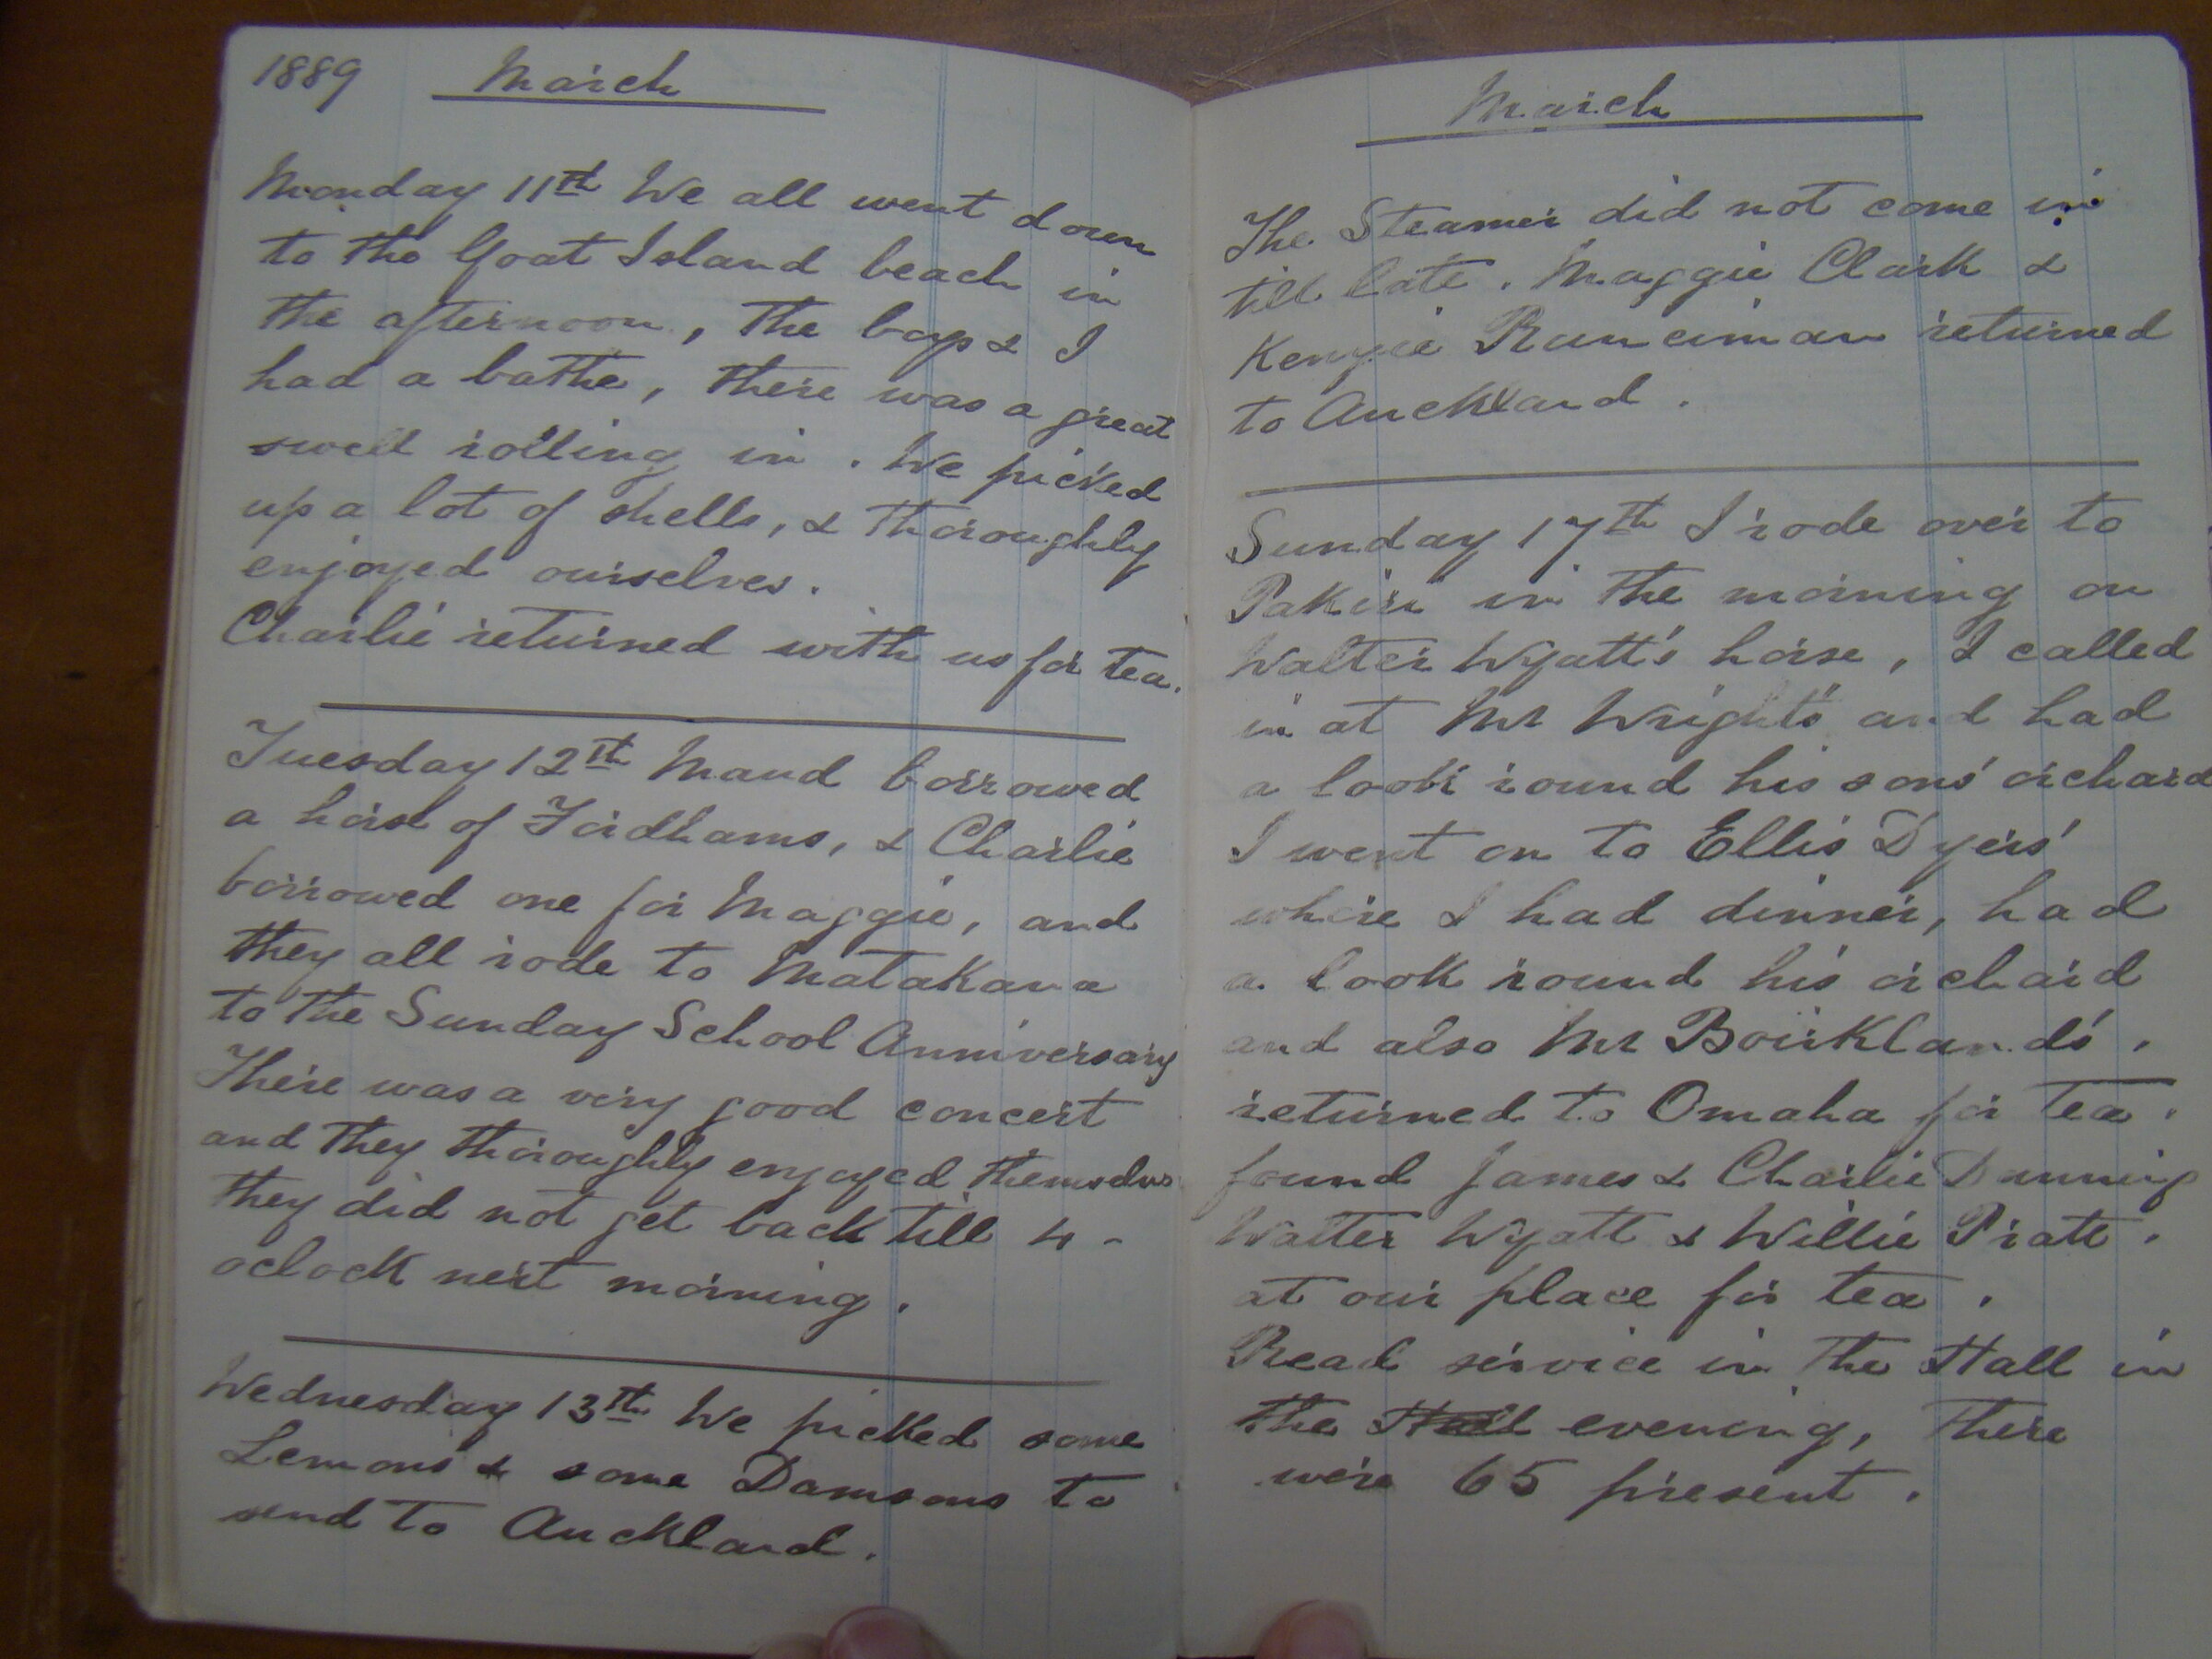 1889 March
Monday 11th We all went down
to the Goat Island beach in
the afternoon, The boys & I
had a bathe, there was a great
swell rolling in. We picked
up a lot of shells, & thoroughly
enjoyed ourselves.
Charlie returned with us for tea.
Tuesday 12th Maud borrowed
a horse of Fordhams, & Charlie
borrowed one for Maggie, and
they all rode to Matakana
to the Sunday School Anniversary
There was a very good concert
and they thoroughly enjoyed themselves
they did not get back till 4 -
oclock next morning.
Wednesday 13th We picked some
Lemons & some Damsons to
send to Auckland.
March
The Steamer did not come in
till late. Maggie Clark &
Runciman returned
to Auckland.
Sunday 17th I rode over to
Pakiri in the morning on
Walter Wyatt's horse, I called
in at Mr Wright's and had
a look round his sons' orchard
I went on to Ellis Dyers'
where I had dinner, had
a look round his orchard
and also Mr .
returned to Omaha for tea.
found James & Charlie Dunning
Walter Wyatt & Willie Pratt.
at our place for tea.
Read service in the Hall in
the evening, There
were 65 present.